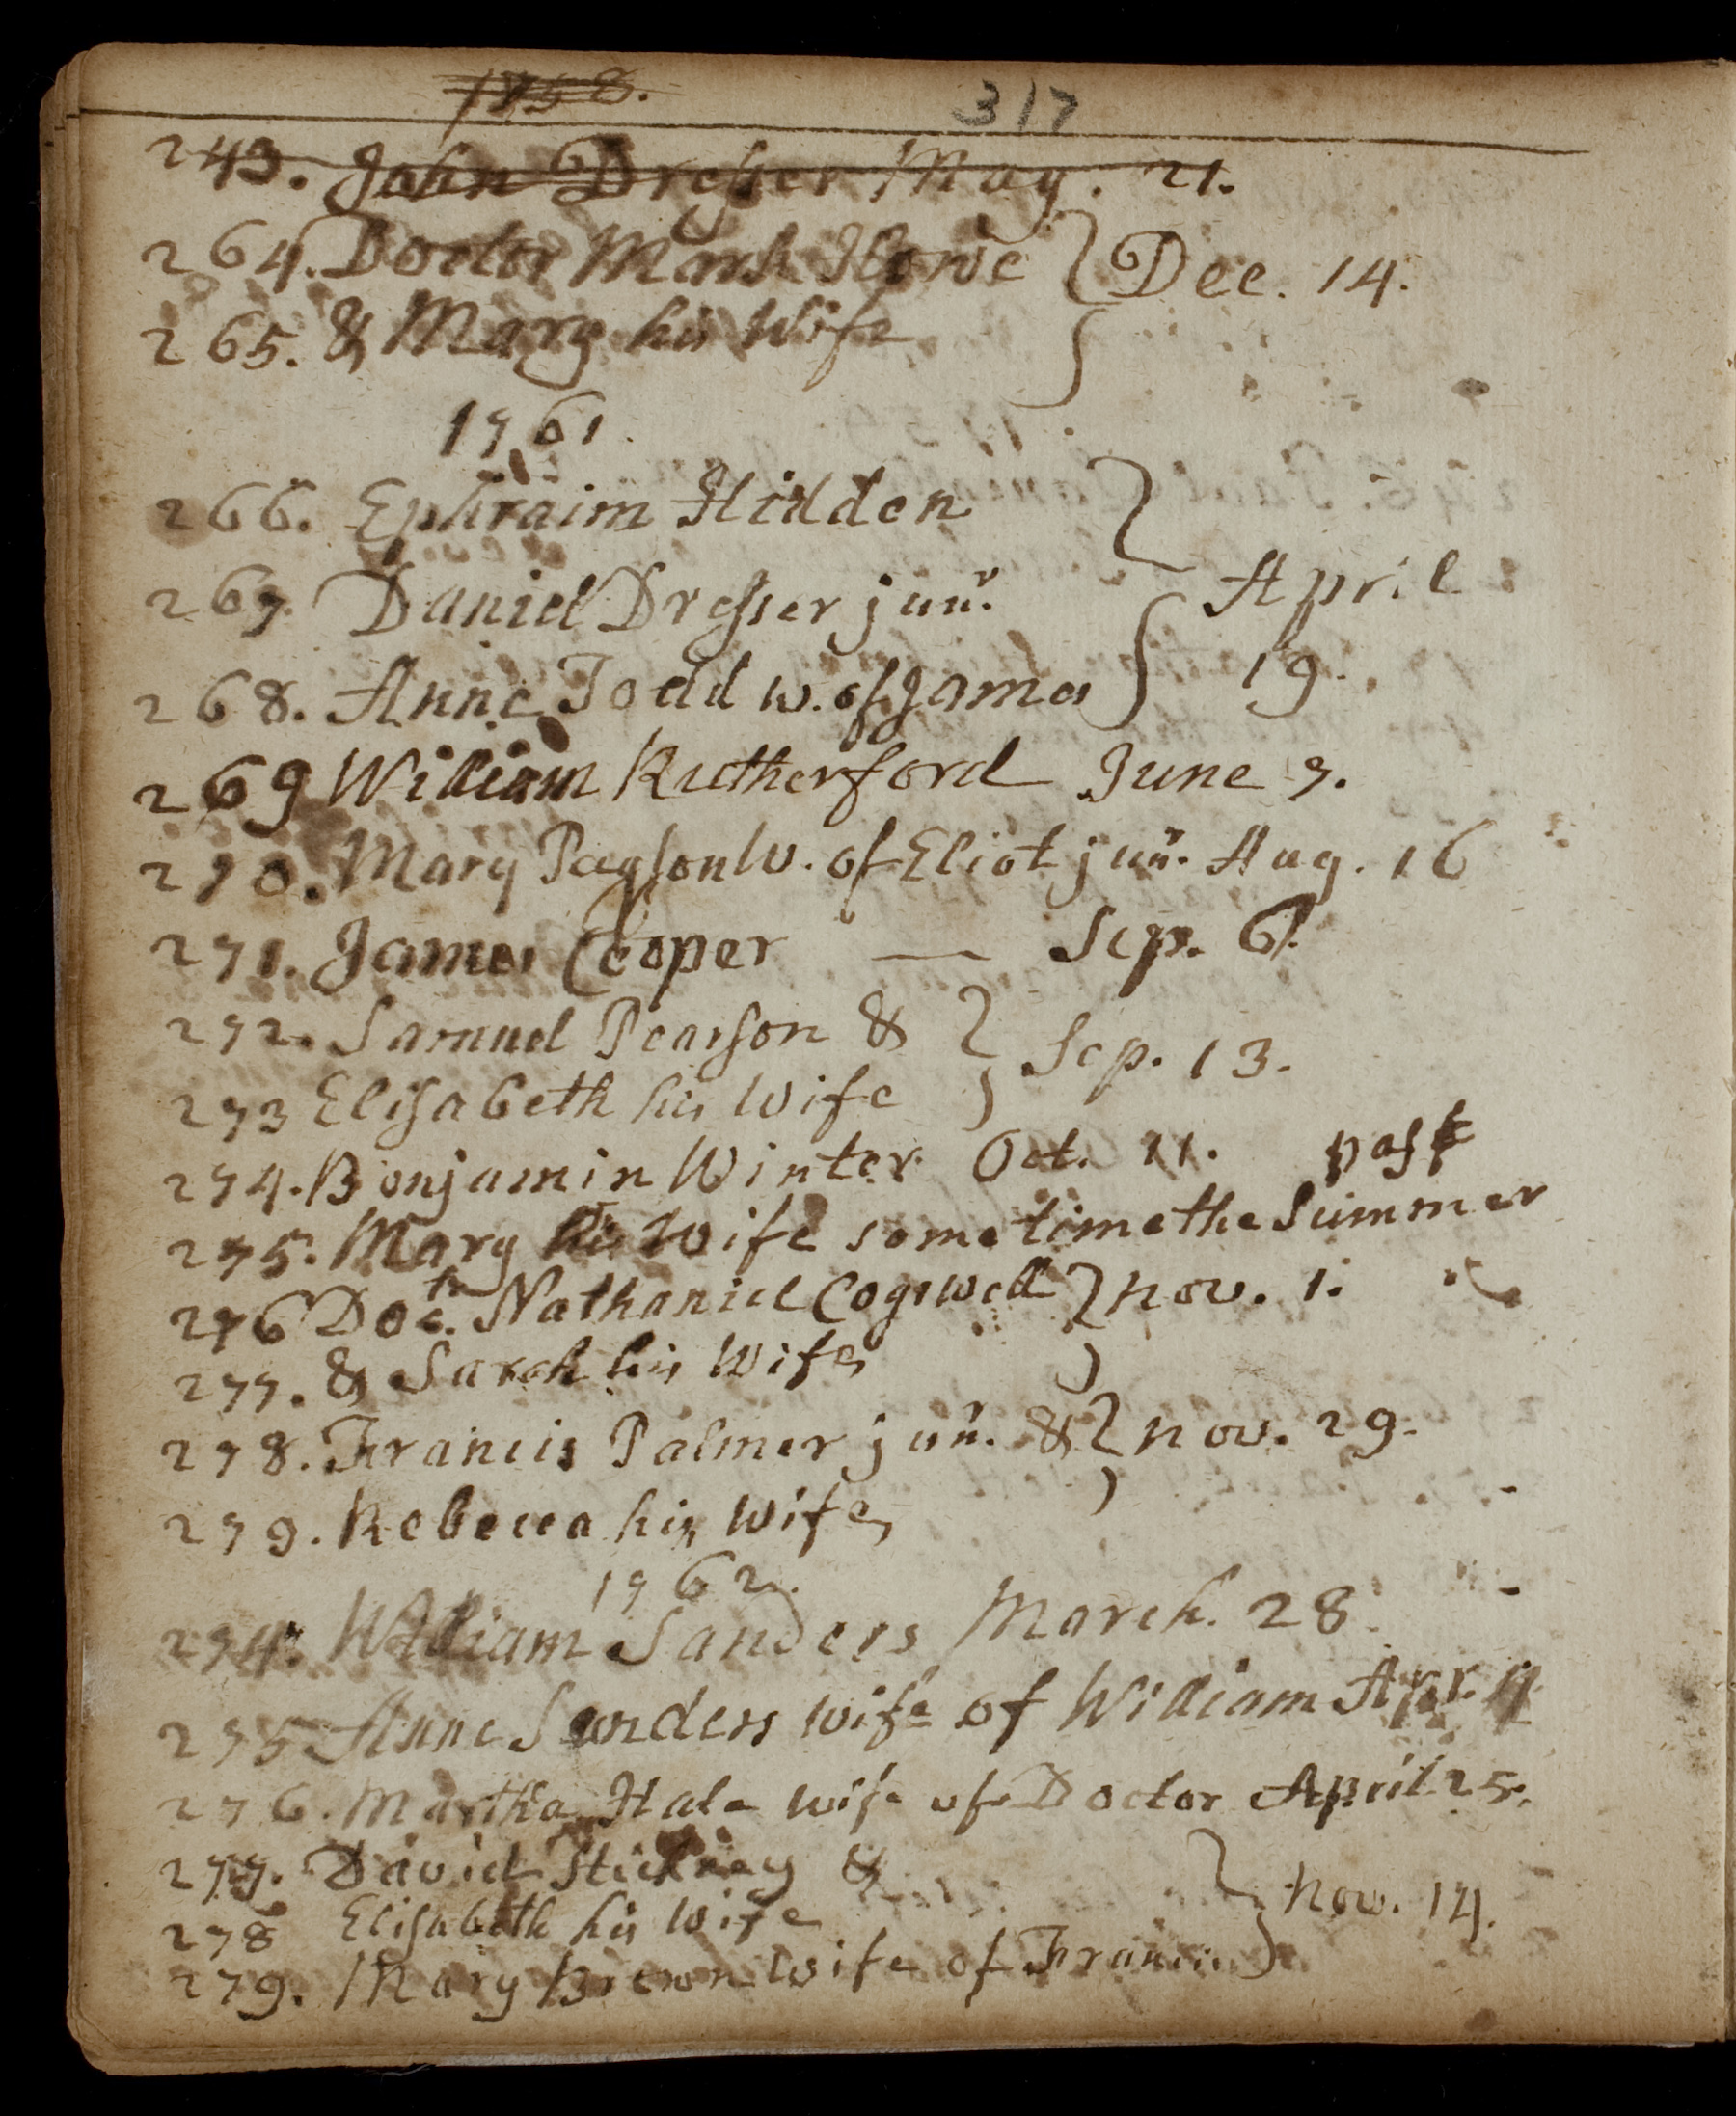 1758.
317
243. John Dresser May. 21.
264. Doctor Mark Howe } Dec. 14.
265. & Mary his Wife
1761.
266. Ephraim Hidden
267. Daniel Dresser junr.
April
268. Anne Todd w. of James } 19.
269 William Rutherford June 7.
270. Mary Payson W. of Eliot junr. Aug. 16
271. James Cooper — Sep. 6.
272. Samuel Pearson & } Sep. 13.
273 Elisabeth his Wife
274. Benjamin Winter Oct. 11. past
275. Mary his Wife some time the Summer
276 Doctr. Nathaniel Cogswell } nov. 1.
277. & Sarah his Wife
278. Francis Palmer junr. & } nov. 29.
279. Rebecca his Wife
1762.
274. William Sanders March. 28.
275 Anne Sanders wife of William Apr.
276. Martha Hale wife of Doctor April 25.
277. David Stickney &
278 Elisabeth his Wife } Nov. 14.
279. Mary Brown Wife of Francis